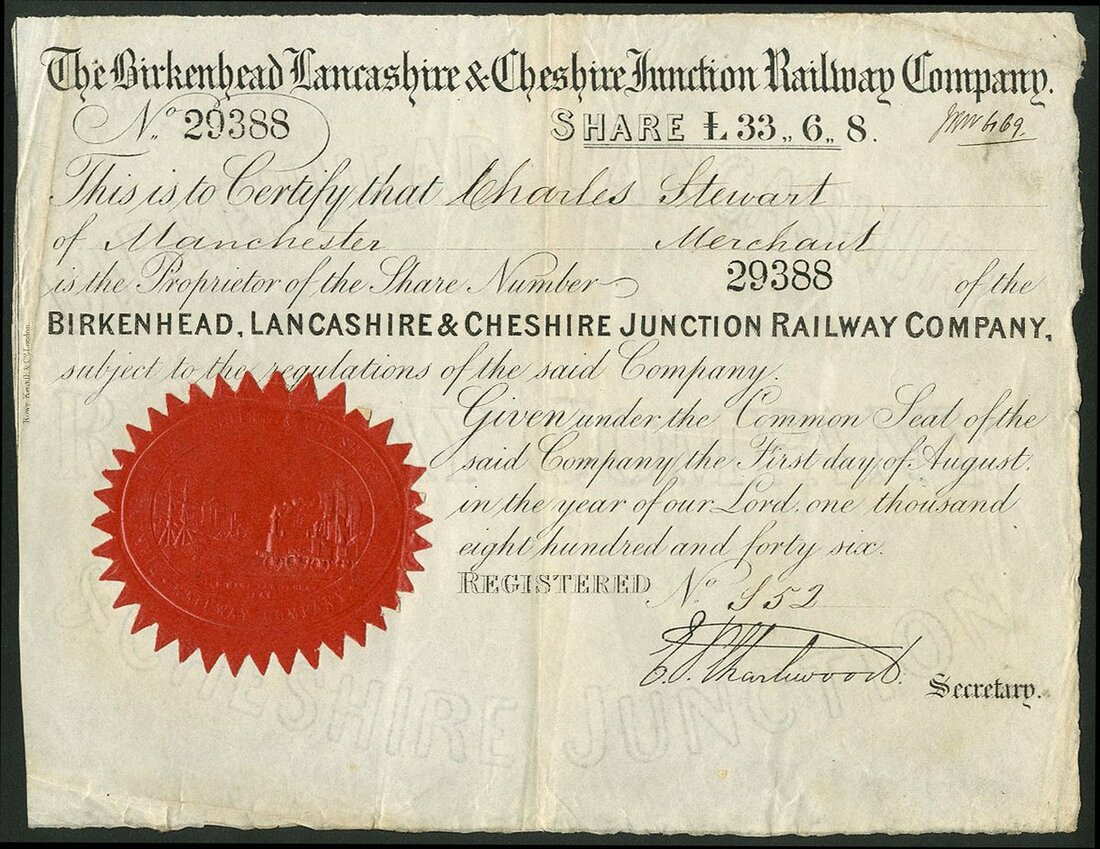 The Birkenhead Lancashire & Cheshire Junction Railway Company.
No. 29388 SHARE £33,,6,,8.
This is to Certify that Charles Stewart
of Manchester Merchant
is the Proprietor of the Share Number 29388 of the
BIRKENHEAD, LANCASHIRE & CHESHIRE JUNCTION RAILWAY COMPANY,
subject to the regulations of the said Company.
Given under the Common Seal of the
said Company the First day of August.
in the year of our Lord one thousand
eight hundred and forty six.
REGISTERED No. S52
Secretary.
CHESHIRE JUNCTION